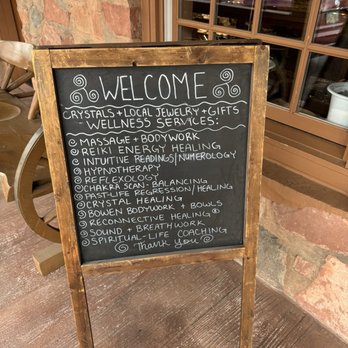 WELCOME
CRYSTALS + LOCAL JEWELRY + GIFTS
- WELLNESS SERVICES:
MASSAGE + BODYWORK
REIKI ENERGY HEALING
INTUITIVE READINGS/NUMEROLOGY
HYPNOTHERAPY
REFLEXOLOGY
CHAKRA SCAN - BALANCING
PAST-LIFE REGRESSION/HEALING
CRYSTAL HEALING
BOWEN BODYWORK + BOWLS
RECONNECTIVE HEALING®
SOUND + BREATHWORK
SPIRITUAL-LIFE COACHING
Thank You